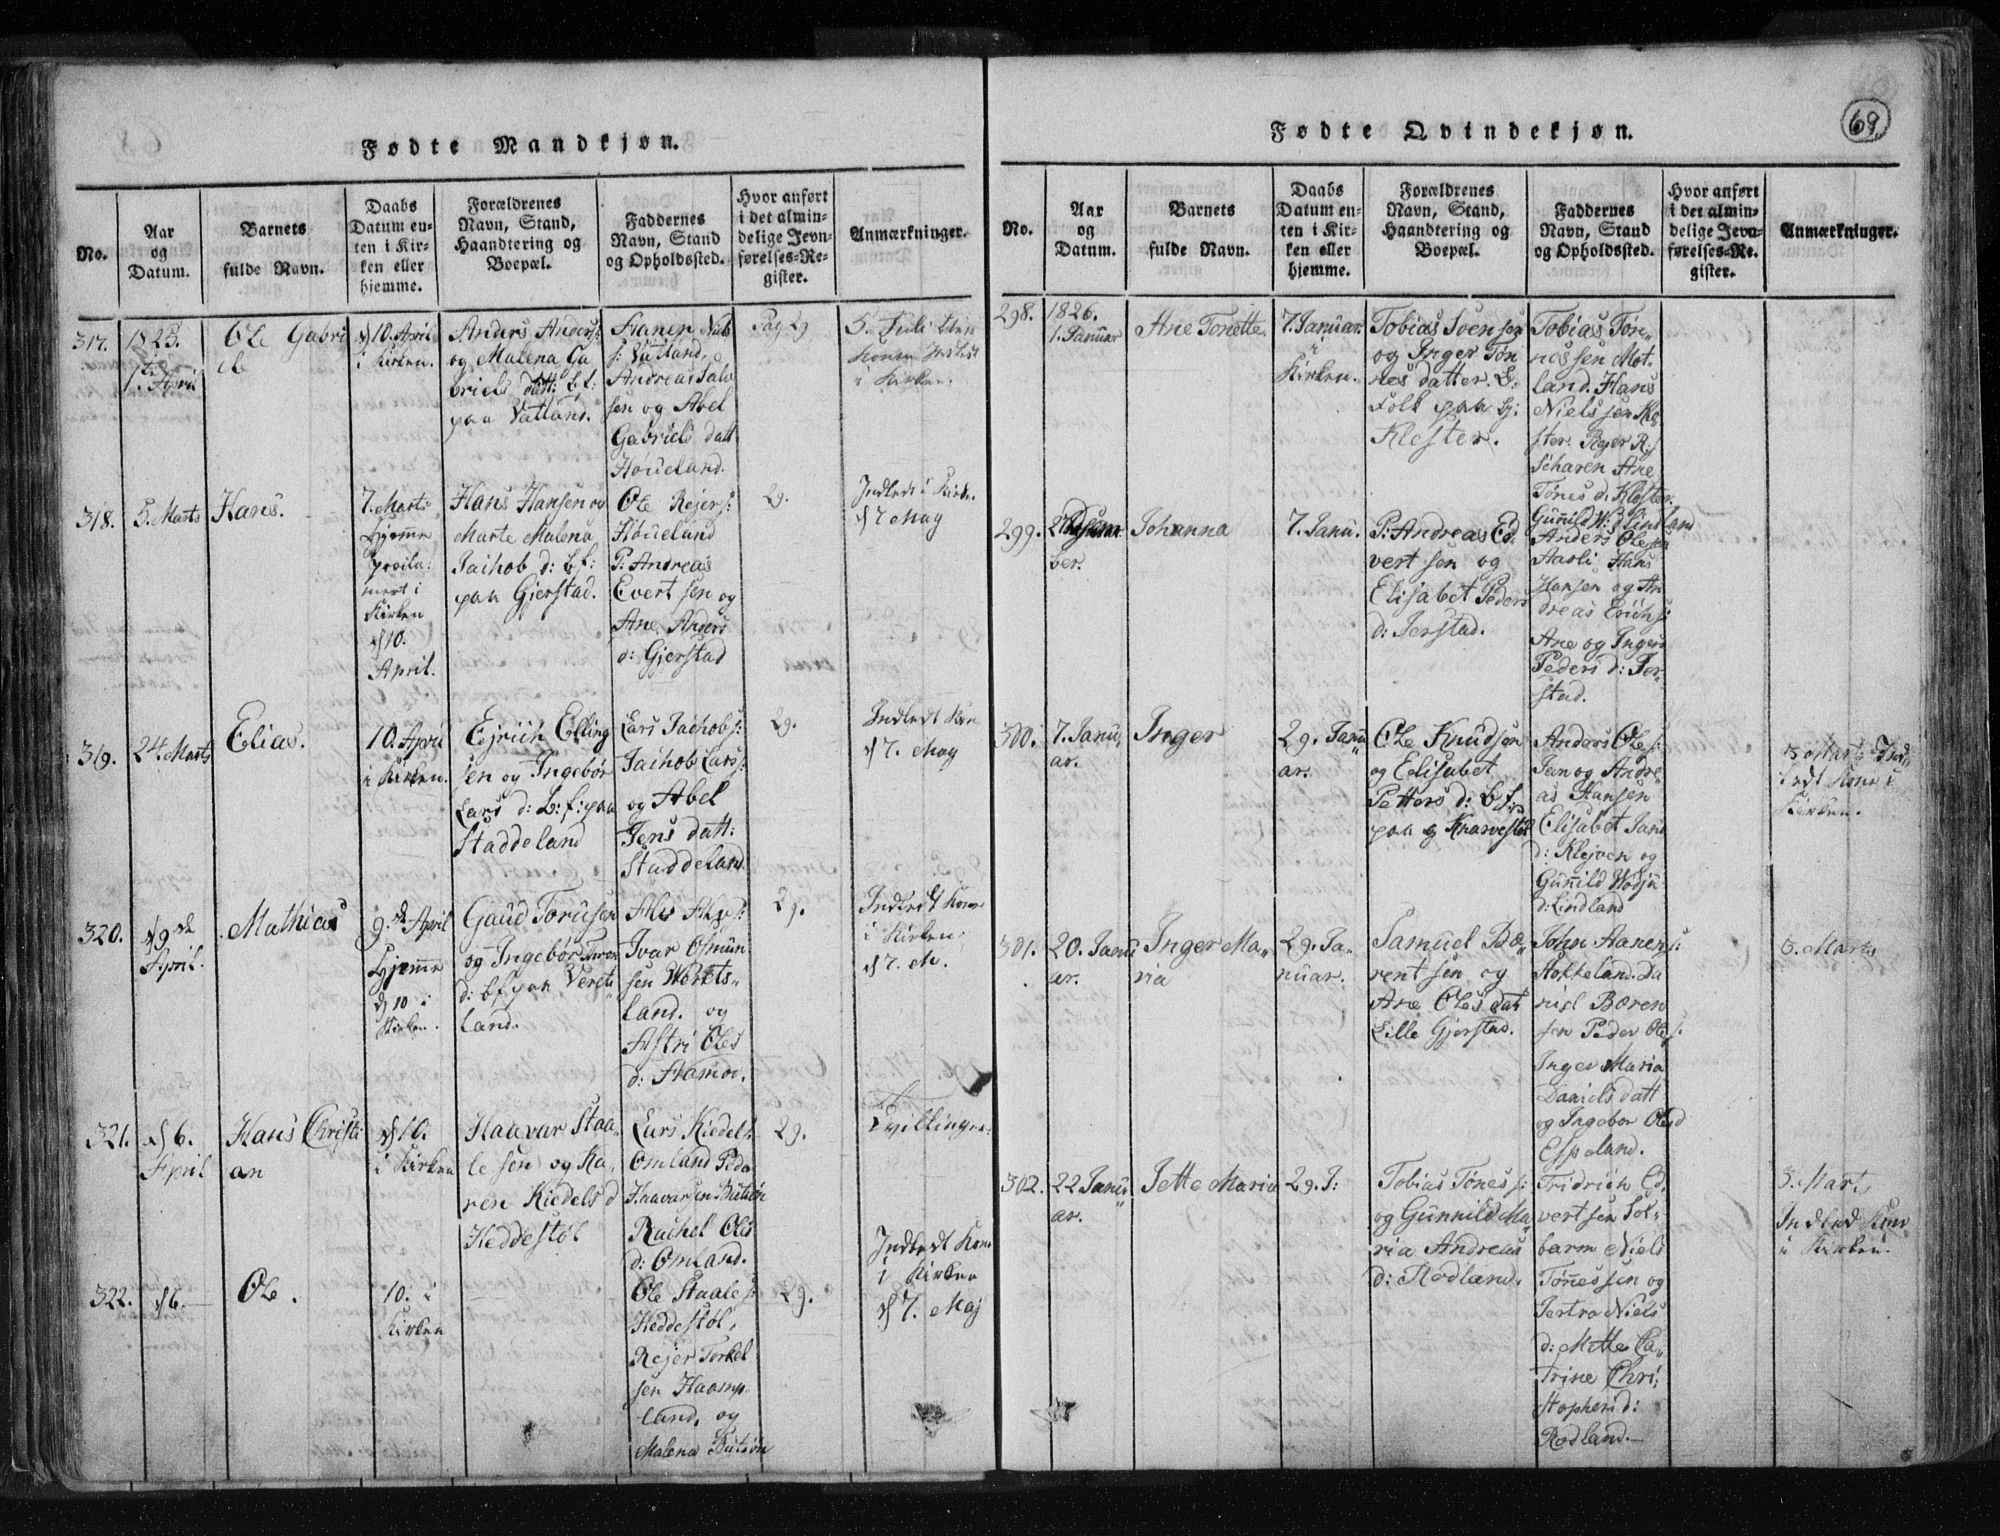 Fødte Mandkjøn.
No.
Aar
og
Datum.
Barnets
fulde Navn.
Daabs
Datum en-
ten i Kir-
ken eller
hjemme.
Forældrenes
Navn, Stand,
Haandtering og
Boepæl.
Faddernes
Navn, Stand
og Opholdssted.
Hvor anført
i det almin-
delige Jevn-
førelses-Re-
gister.
Anmærkninger.
317.
1825.
1ste April
Ole Gabri
el
d 10. April
i Kirken.
Anders Anders:
og Malena Ga
briels datt: b: f:
paa Vatland.
Aanen Niels
s: Vatland,
Andreas
sen og Abel
Gabriels datt
Høueland.
Pag 29
5. Juli
Konen Indledt
i Kirken.
318.
5. Marts
Hans.
7. Marts
Hjemme
mert i
Kirken
d 10.
April.
Hans Hansen og
Marte Malena
Jachob d: b: f:
paa Gjerstad.
Ole Rejers:
Høueland
P: Andreas
Evertsen og
Ane Anders
d: Gjerstad
29.
Indledt i Kirk.
d 7 May
319.
24. Marts
Elias.
10. April
i Kirken.
Ejrich Elling
sen og Ingebor
Lars d: b: f: paa
Staddeland
Lars Jachobs:
Jachob Lars:
og Abel
Jens datt:
Staddeland.
29.
Indledt Kon
d 7. May
320.
d 9de
April.
Mathias
9de April
Hjemme
d 10 i
Kirken.
Gaud Torusen
og Ingebor
d: b: f: paa Verets
land.
Ivar Osmun
sen Werets-
land. og
Astri Oles
d: Aamot.
29.
Indledt Kone
i Kirken:
d 7. M.
321.
d 6.
April
Hans Christi
an
d 10.
i Kirken
Haavar Staa-
lesen og Ka-
ren Kiedels d
Heddestøl
Lars Kiedels:
Omland Peder
Haavarsen
Rachel Oles
d: Omland.
29.
Tvillinger
322.
d 6.
Ole.
10. i
Kirken
Ole Staales:
Heddestøl,
Rejer Torkel
sen Haamp-
land. og
Malena
29.
Indledt Kone
i Kirken
d 7. Maj
Fødte Qvindekjøn.
69.
No.
Aar
og
Datum.
Barnets
fulde Navn.
Daabs
Datum en-
ten i Kir-
ken eller
hjemme.
Forældrenes
Navn, Stand,
Haandtering og
Boepæl.
Faddernes
Navn, Stand
og Opholdssted.
Hvor anført
i det almin-
delige Jevn-
førelses-Re-
gister.
Anmærkninger.
298.
1826.
1. Januar
Ane Tonette.
7. Januar
i
Kirken.
Tobias Svensen
og Inger Tøn
nes datter. b:
Folk paa
Kloster.
Tobias Tøn-
nessen Mot-
land. Hans
Nielssen Klo
ster. Rejer R:
Scharen Ane
Tønes d. Kloster.
Gunild N: d Lindland
299.
ber.
Johanna
7. Janu.
P: Andreas Ed
vertsen og
Elisabet Peders
d: Jerstad.
Anders Olesen
Aasli Hans
Hansen og An
dreas Erichs:
Ane og Inger
Peders d: Jer-
stad.
300.
7. Janu-
ar.
Inger
29. Janu-
ar.
Ole Knudsen
og Elisabet
Petters d: b: f:
paa Knarvestøl
Anders Ole s:
Jan og Andre-
as Hansen
Elisabet Jans
d: Klejven og
Gunild
d: Lindland
3. Marts Ind-
ledt Kone i
Kirken.
301.
20. Janu
ar.
Inger Ma-
ria
29. Ja-
nuar.
Samuel Bæ-
rentsen og
Ane Oles dat
Lille Gjerstad.
John Aanens:
Stokkeland. Da
niel Bæren
sen Peder Oles:
Inger Maria
Daniels datt
og Ingebor Oles d
Espeland.
3. Marts
302.
22 Janu-
ar.
Jette Maria
29. J:
Tobias Tønes s:
og Gunnild Ma-
ria Andreas
d: Rødland.
Fridrich Ed.
vertsen Sol-
barm Niels
Tønnessen og
Jertru Niels
d: Mette Ca-
trine Chri-
stophers d:
Rødland.
3. Marts
Indledt Kone
i Kirken.